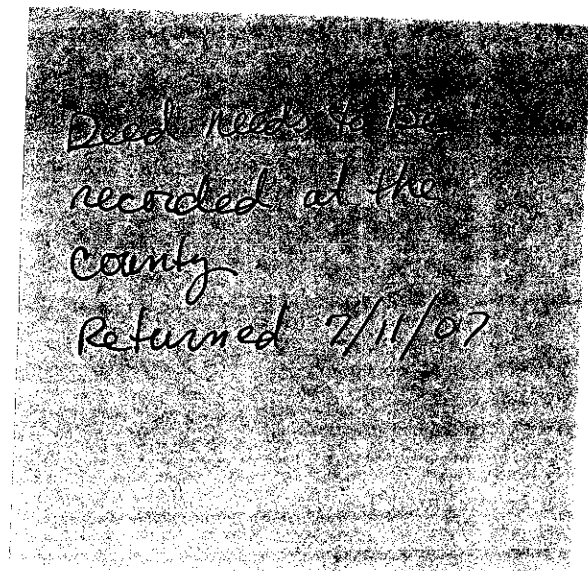 Deed needs to be
recorded at the
County
Returned 7/11/07